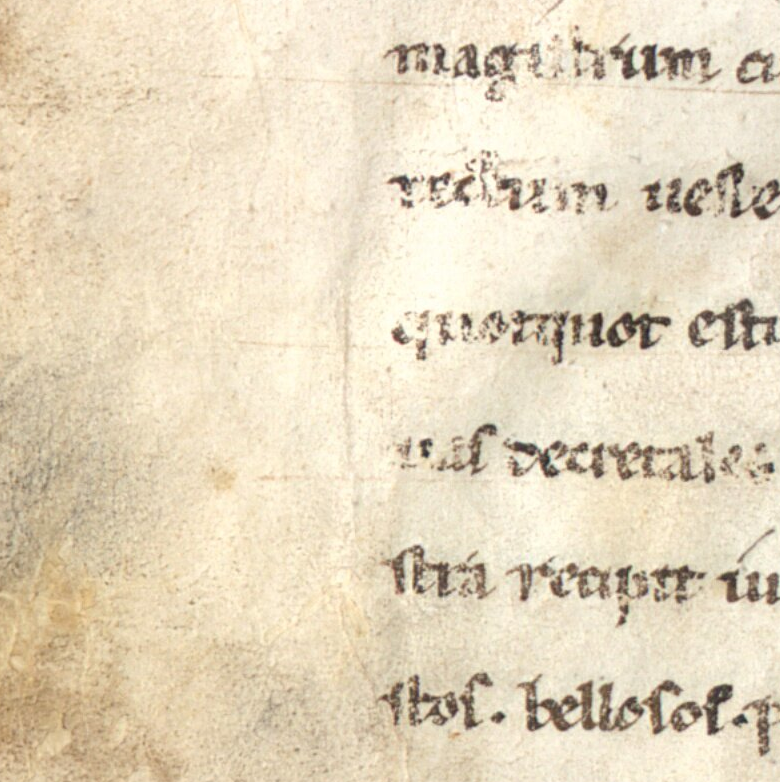 magistrum
rectum ueste
quotquot esti
uas decretales
stra recipit iu
stos. bellosos. p